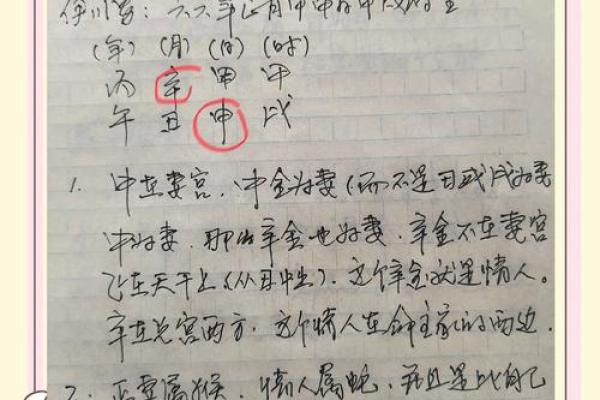 六六年正月甲申日甲戌时生
(年) (月) (日) (时)
丙 辛 甲 甲
午 丑 申 戌
1. 申在妻宫，申金为妻(而不是丑或戌为妻
申为妻，那么辛金也为妻，辛金不在妻宫
飞在天干上(从丑中出)，这个辛金就是情人。
辛在兑宫西方，这个情人在命主家的西边.
2. 正妻属猴，情人属蛇，并且是比自己